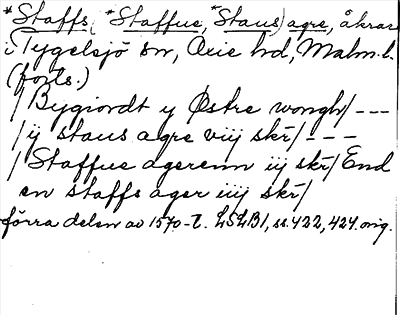 *Staffs(*Staffue, *Staus) agre, åkrar
i Tygelsjö sn, Oxie hd, Malm.l.
(forts.)
/ Bygiordt y Østre wongh/ ---
/ ij staus agre viij skr/ ---
/ Staffue agerenn iij skr/ End
en staffs ager iiij skr/
förra delen av 1570-t. LSLB1, ss. 422, 424. orig.